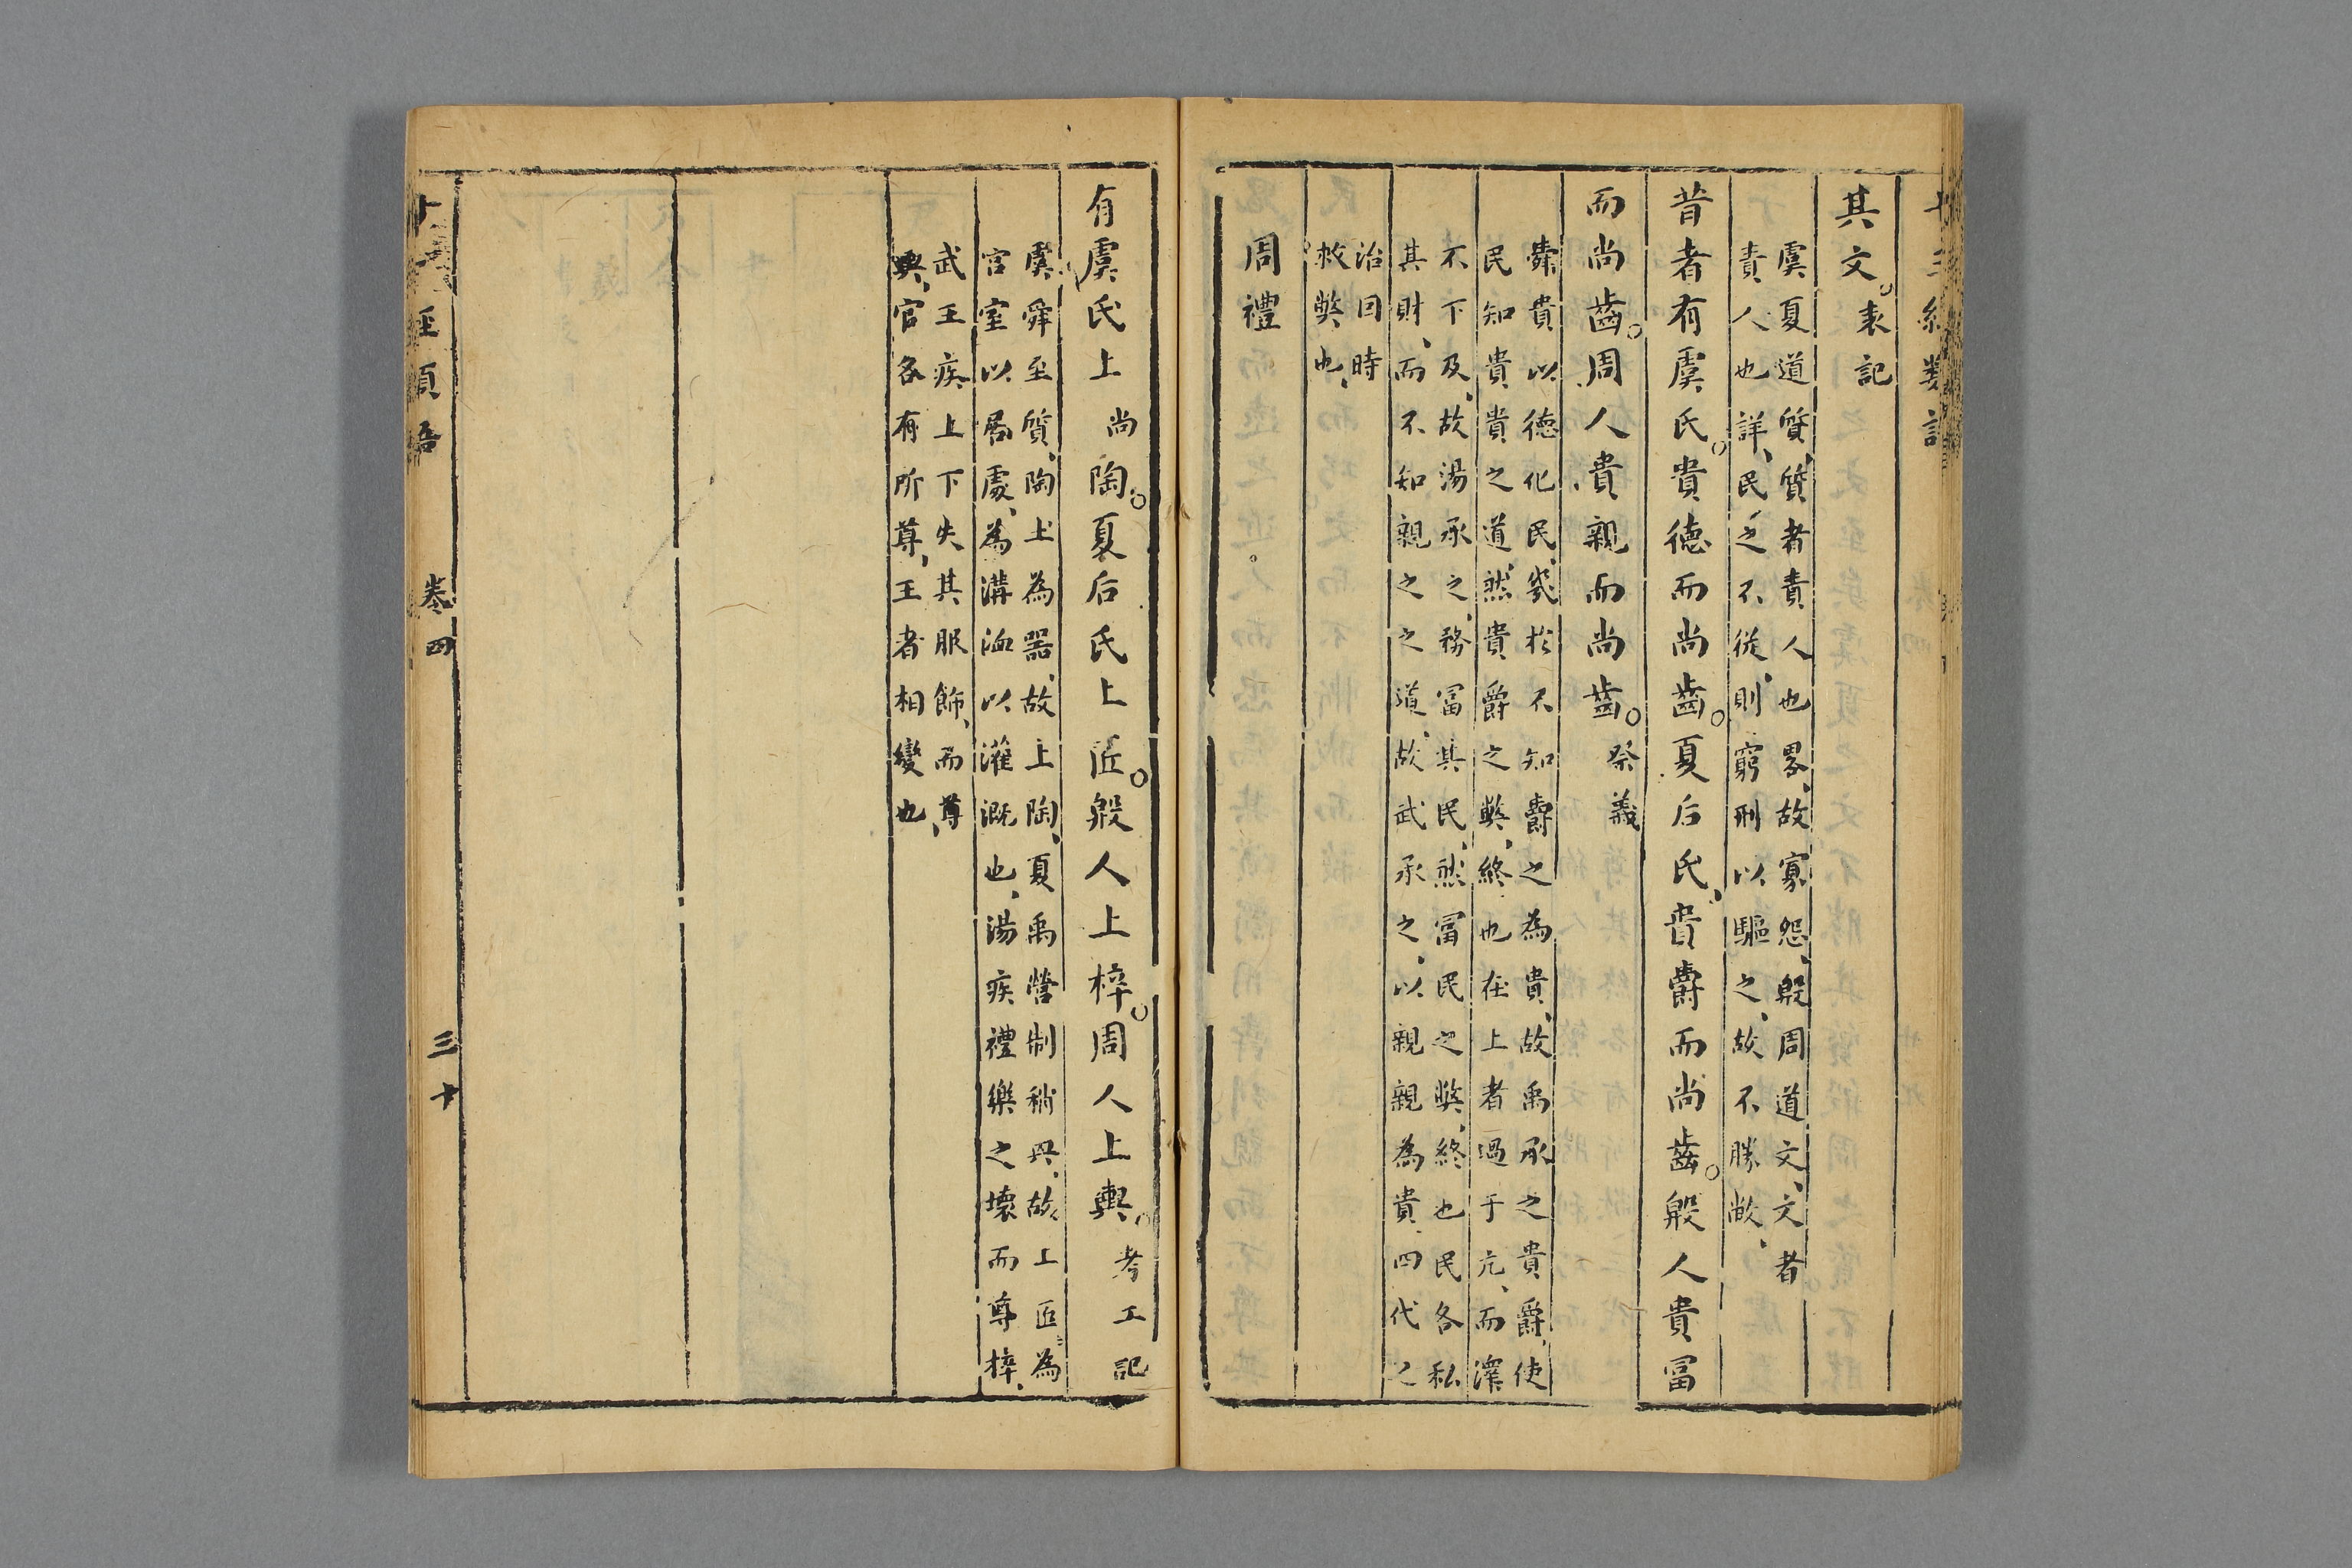 其文。表記
虞夏道質、質者責人也畧、故寡怨、殷周道文、文者
責人也詳、民之不從、則窮刑以驅之、故不勝敝、
昔者有虞氏。貴德而尚齒。夏后氏、貴爵而尚齒。殷人貴冨
而尚齒。周人貴親而尚齒。祭義
舜貴以德化民、幾於不知爵之為貴、故禹承之貴爵、使
民知貴貴之道、然貴爵之弊、終也在上者過于亢、而澤
不下及、故湯承之、務冨其民、然冨民之弊、終也民各私
其財、而不知親之之道、故武承之、以親親為貴、四代之
治因時
救弊也、
周禮
有虞氏上尚陶。夏后氏上匠。殷人上梓。周人上輿。考工記
虞舜至質、陶土為器、故上陶、夏禹營制稍興、故上匠、為
宮室以居處、為溝洫以灌溉也、湯疾禮樂之壞而尊梓、
武王疾上下失其服飾、而尊
輿、官各有所尊、王者相變也、
卷四
三十